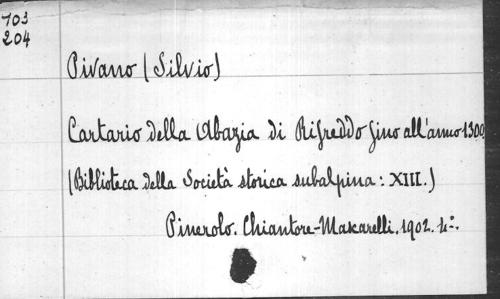 103
204
Pivano (Silvio)
Cartario della Abazia di Rifreddo fino all'anno 1300
(Biblioteca della Società storica subalpina: XIII.)
Pinerolo. Chiantore-Mascarelli. 1902. 4°.